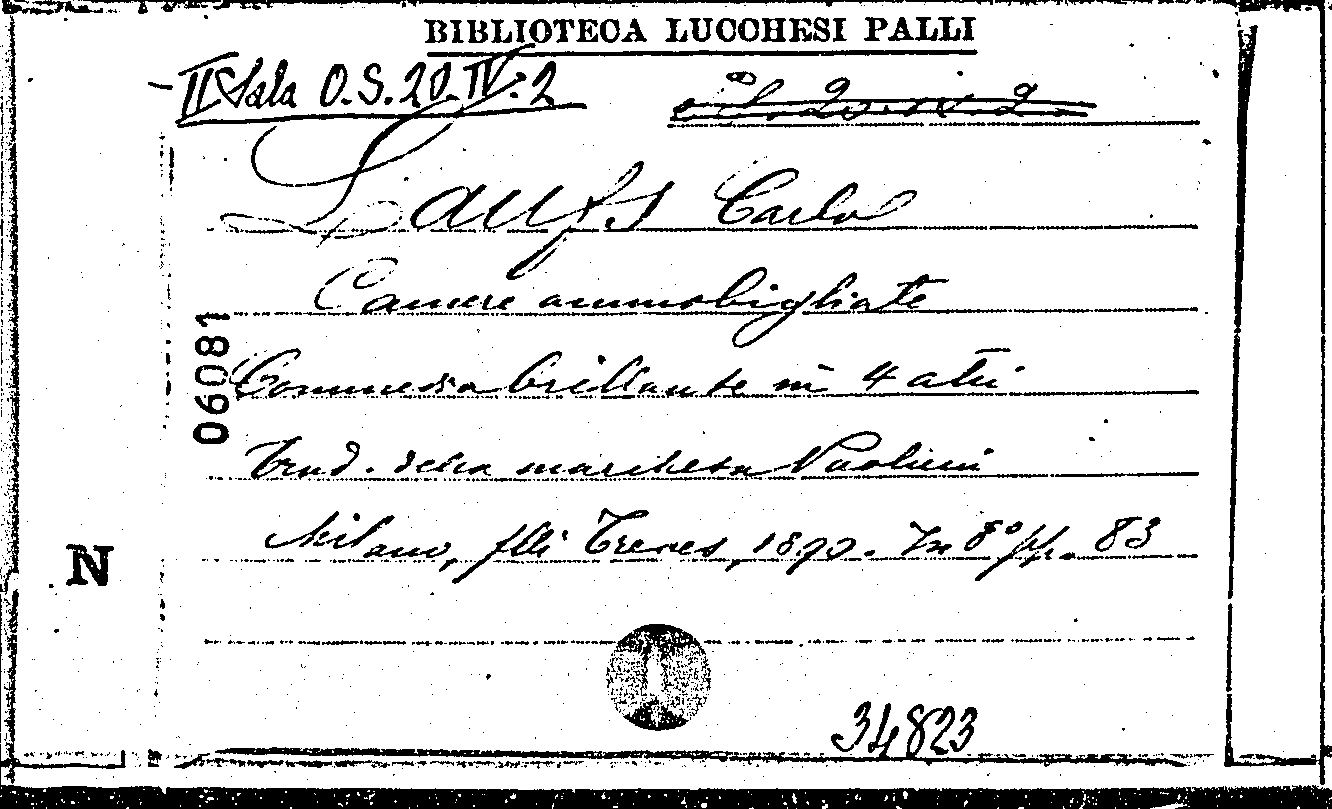 BIBLIOTECA LUCCHESI PALLI
II Sala O.S. 20. IV. 2
Laufs Carlo
Camere ammobigliate
Commedia brillante in 4 atti
Trad. della marchesa Paolini
Milano, flli Treves, 1890. In 8° pp. 83
06081
N
34823